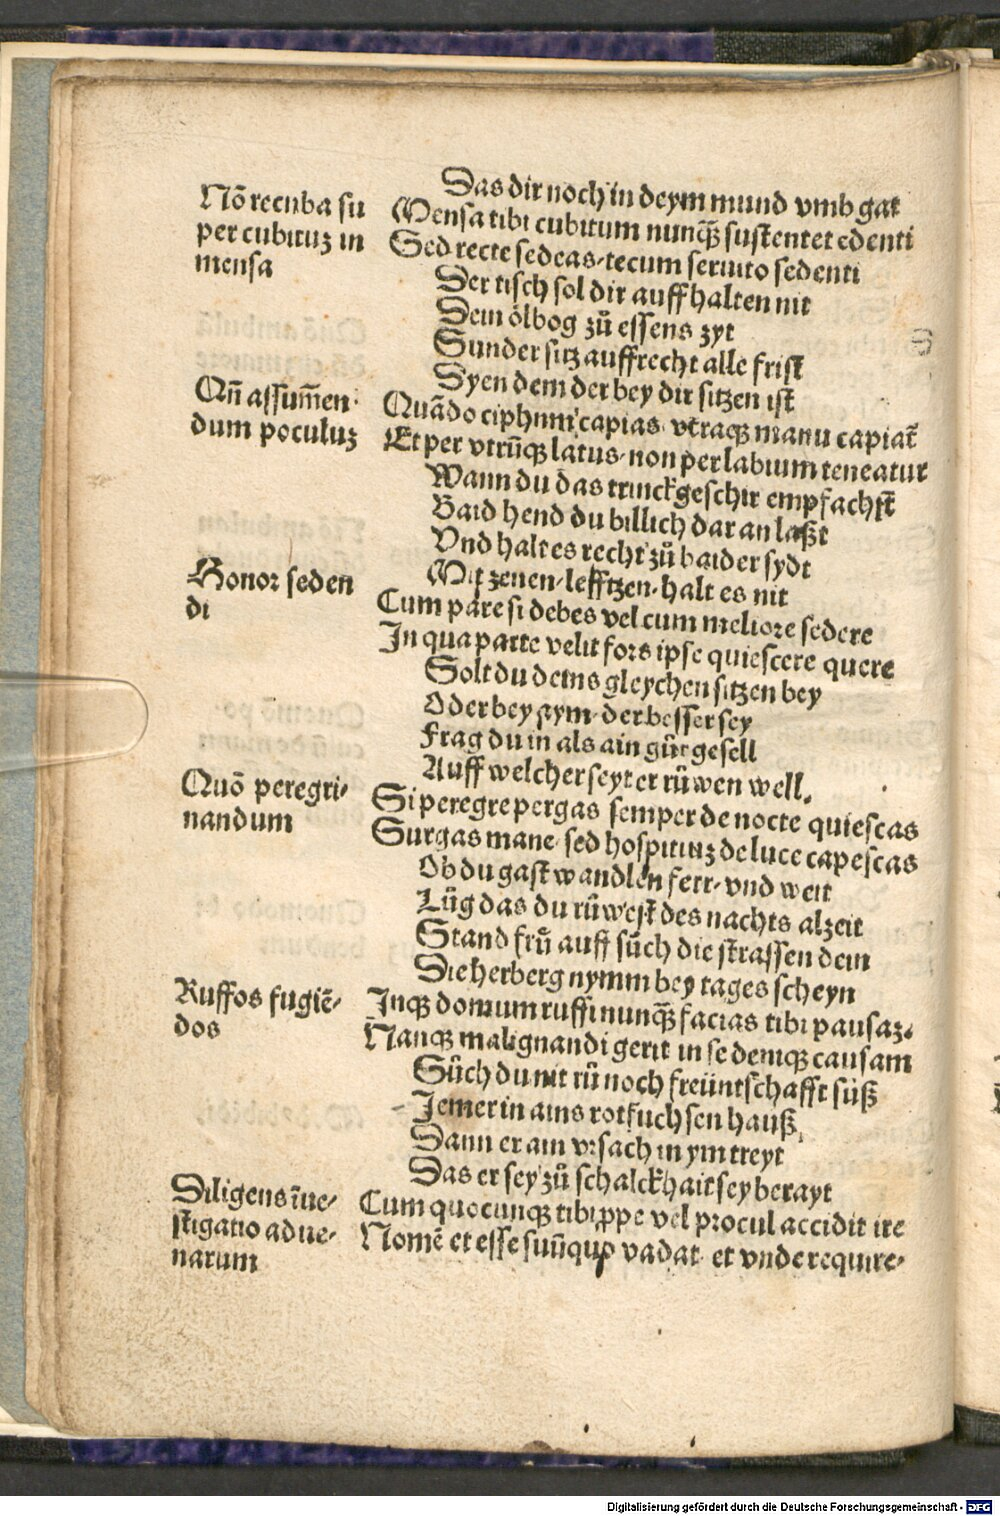 Das dir noch in deym mund vmb gat
Nō recuba su
per cubituꝫ in
mensa
Mensa tibi cubitum nunqꝫ̄ sustentet edenti
Sed recte sedeas, tecum seruito sedenti
Der tisch sol dir auffhalten nit
Dein ölbog zuͦ essens zyt
Sunder sitz auffrecht alle frist
Dyen dem der bey dir sitzen ist
Qn̄ assum̄en
dum poculuꝫ
Quādo ciphum capias, vtraqꝫ manu capiat̄
Et per vtrūqꝫ latus, non per labium teneatur
Wann du das trinckgeschir empfachst
Baid hend du billich dar an laßt
Vnd halt es recht zuͦ baider sydt
Mit zenen, lefftzen, halt es nit
Honor seden
di
Cum pare si debes vel cum meliore sedere
In qua parte velit fors ipse quiescere quere
Solt du deins gleychen sitzen bey
Oder bey aym, der besser sey
Frag du in als ain guͦt gesell
Auff welcher seyt er ruͤwen well.
Quō peregri-
nandum
Si peregre pergas semper de nocte quiescas
Surgas mane, sed hospitiuꝫ de luce capescas
Ob du gast wandlen ferr, vnd weit
Luͦg das du ruͤwest des nachts alzeit
Stand fruͤ auff suͦch die strassen dein
Die herberg nymm bey tages scheyn
Ruffos fugiē-
dos
Inqꝫ domum ruffi nunqꝫ̄ facias tibi pausaꝫ.
Nanqꝫ malignandi gerit in se deniqꝫ causam
Suͦch du nit ruͦ noch freüntschafft süß
Jemer in ains rotfuchsen hauß,
Dann er ain vrsach in ym treyt
Das er sey zuͦ schalckhait sey berayt
Diligens īue-
stigatio adue-
narum
Cum quocunqꝫ tibi ꝓpe vel procul accidit ire
Nomē et esse suū quo vadat et vnde require,
Digitalisierung gefördert durch die Deutsche Forschungsgemeinschaft - DFG